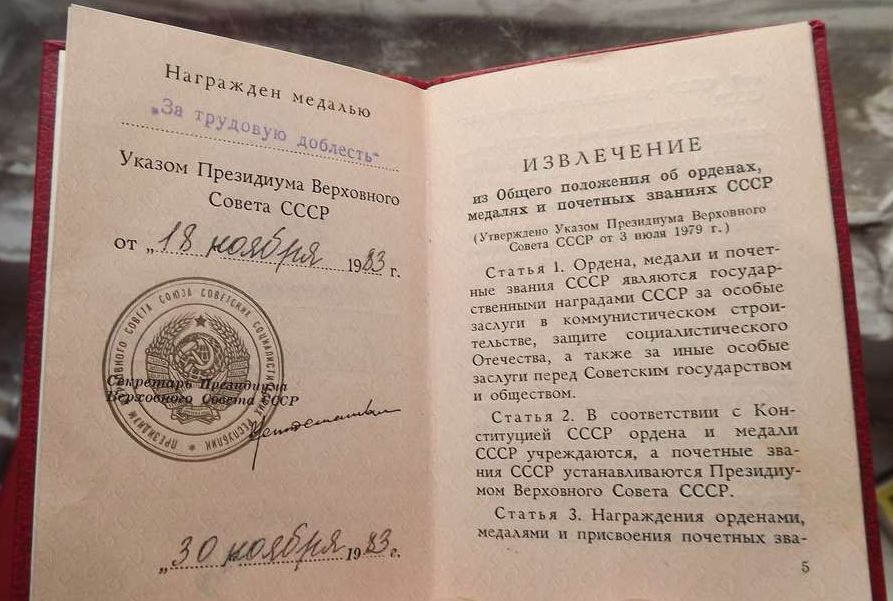 Награжден медалью
„За трудовую доблесть“
Указом Президиума Верховного
Совета СССР
от „18 ноября 1983 г.
ПРЕЗИДИУМ ВЕРХОВНОГО СОВЕТА СОЮЗА СОВЕТСКИХ СОЦИАЛИСТИЧЕСКИХ РЕСПУБЛИК
Секретарь Президиума
Верховного Совета СССР
„30 ноября 1983 г.
ИЗВЛЕЧЕНИЕ
из Общего положения об орденах,
медалях и почетных званиях СССР
(Утверждено Указом Президиума Верховного
Совета СССР от 3 июля 1979 г.)
Статья 1. Ордена, медали и почет-
ные звания СССР являются государ-
ственными наградами СССР за особые
заслуги в коммунистическом строи-
тельстве, защите социалистического
Отечества, а также за иные особые
заслуги перед Советским государством
и обществом.
Статья 2. В соответствии с Кон-
ституцией СССР ордена и медали
СССР учреждаются, а почетные зва-
ния СССР устанавливаются Президиу-
мом Верховного Совета СССР.
Статья 3. Награждения орденами,
медалями и присвоения почетных зва-
5